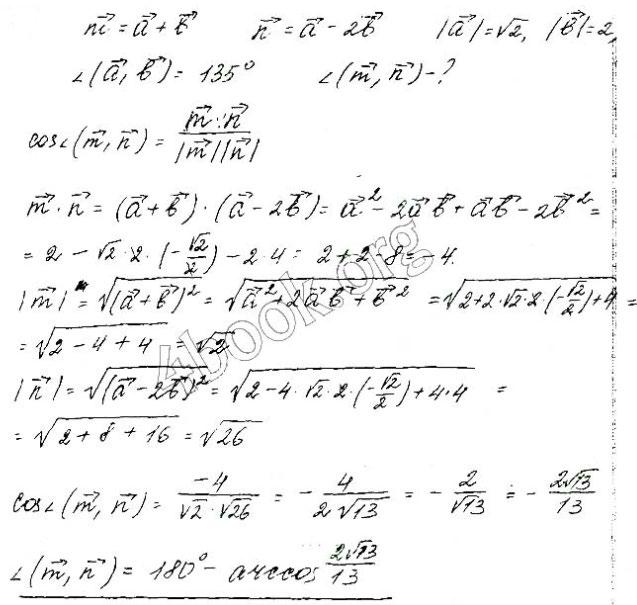 m⃗ = a⃗ + b⃗   n⃗ = a⃗ - 2b⃗   |a⃗| = √2, |b⃗| = 2,
∠(a⃗, b⃗) = 135°   ∠(m⃗, n⃗) - ?
cos∠(m⃗, n⃗) = (m⃗·n⃗)/(|m⃗||n⃗|)
m⃗ · n⃗ = (a⃗ + b⃗) · (a⃗ - 2b⃗) = a⃗² - 2a⃗b⃗ + a⃗b⃗ - 2b⃗² =
= 2 - √2 · 2 · (-√2/2) - 2·4 = 2 + 2 - 8 = -4.
|m⃗| = √((a⃗ + b⃗)²) = √(a⃗² + 2a⃗b⃗ + b⃗²) = √(2 + 2·√2·2·(-√2/2) + 4) =
= √(2 - 4 + 4) = √2
|n⃗| = √((a⃗ - 2b⃗)²) = √(2 - 4·√2·2·(-√2/2) + 4·4) =
= √(2 + 8 + 16) = √26
cos∠(m⃗, n⃗) = -4/(√2·√26) = -4/(2√13) = -2/√13 = -2√13/13
∠(m⃗, n⃗) = 180° - arccos 2√13/13
4book.org